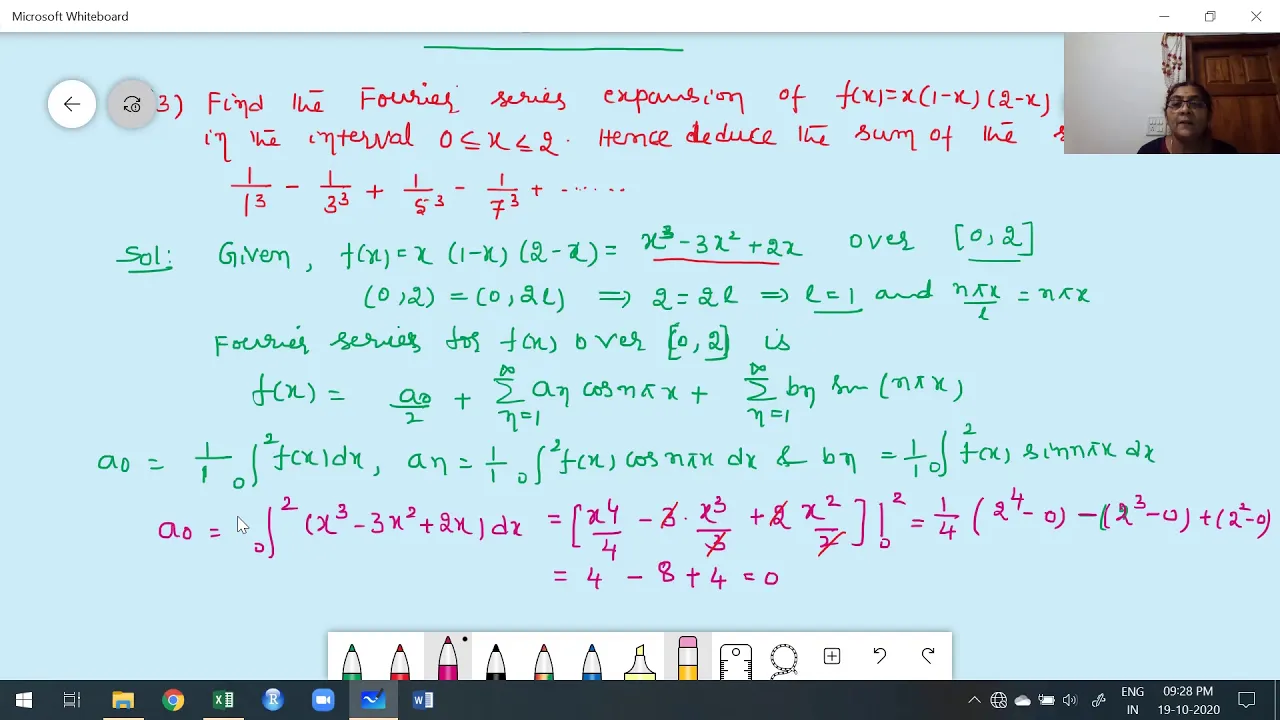 Microsoft Whiteboard
3) Find the Fourier series expansion of f(x)=x(1-x)(2-x)
in the interval 0≤x≤2. Hence deduce the sum of the s
1/1³ - 1/3³ + 1/5³ - 1/7³ + ......
Sol: Given, f(x)=x(1-x)(2-x)= x³-3x²+2x over [0,2]
(0,2) = (0,2l) ⇒ 2=2l ⇒ l=1 and nπx/l = nπx
Fourier series for f(x) over [0,2] is
f(x) = a₀/2 + ∑_{n=1}^{∞} aₙ cosnπx + ∑_{n=1}^{∞} bₙ sin(nπx)
a₀ = 1/1 ∫₀² f(x)dx, aₙ = 1/1 ∫₀² f(x) cosnπx dx & bₙ = 1/1 ∫₀² f(x) sinnπx dx
a₀ = ∫₀² (x³-3x²+2x)dx = [x⁴/4 - 3·x³/3 + 2 x²/2]|₀² = 1/4 (2⁴-0) - (2³-0) + (2²-0)
= 4 - 8 + 4 = 0
ENG
IN
09:28 PM
19-10-2020